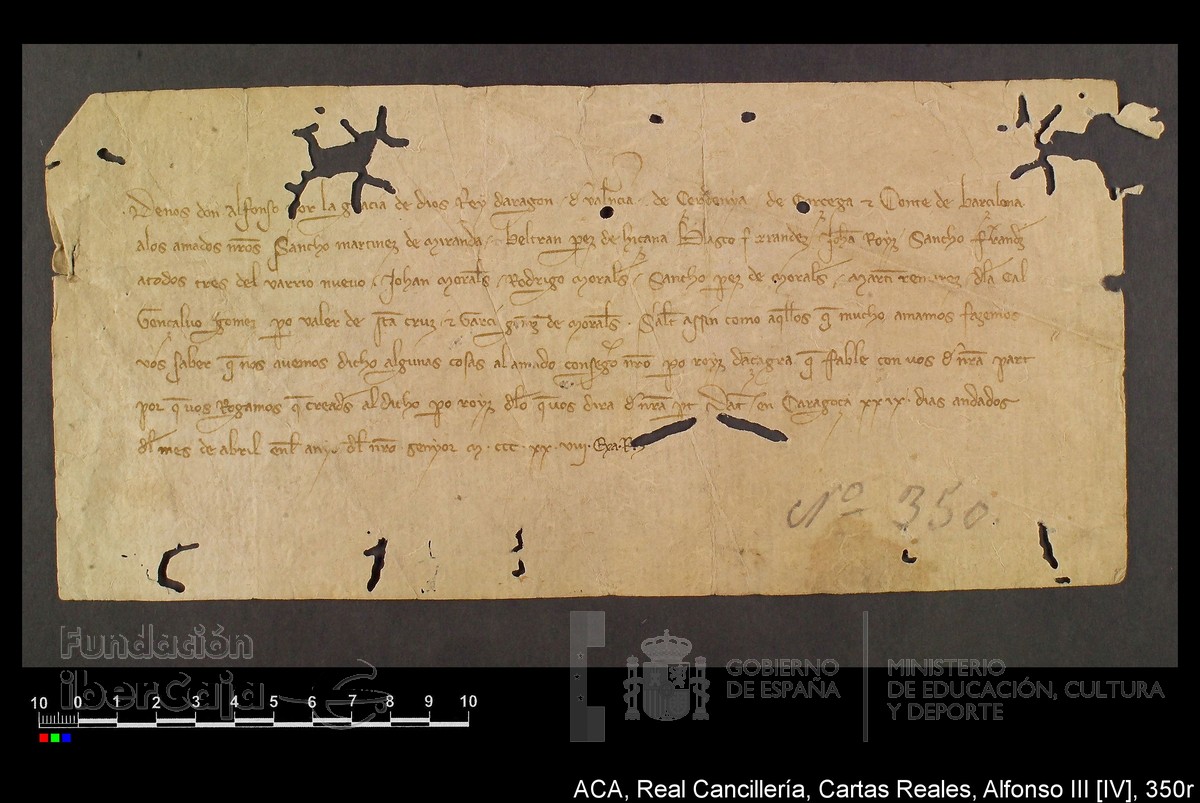 De nos don Alfonso por la gracia de dios Rey daragon . d val̄ncia . de Cerdenya . de Corcega & Conte de barcilona
alos amados nr̄os Sancho martinez de Miranda / beltran p̄ez de / Blasco fferrandez / Joh̄a Royz / Sancho fferrand̄z
atodos tres del varrio nuevo / Johan moral̄s / Rodrigo moral̄s / Sancho p̄ez de moral̄s / Martī / dla Cal
Goncalvo gomez p̄o valer de sc̄a cruz / & Garci de moral̄s . Sal̄t assin como aq̄llos q̄ mucho amamos fazemos
vos saber q̄ nos avemos dicho algunas cosas al amado consegō nr̄o p̄o royz dacagra q̄ ffable con vos d n̄ra part
por q̄ vos Rogamos q̄ cread̄s al dicho p̄o royz dlo q̄ vos dira d n̄ra p̄t Dat̄ en Caragoça xxix . dias andados
dl mes de abril enl any dl nr̄o senyor M . ccc . xx . viii . Exa . R
Nº 350.
Fundación
iberCaja
GOBIERNO
DE ESPAÑA
MINISTERIO
DE EDUCACIÓN, CULTURA
Y DEPORTE
10 0 1 2 3 4 5 6 7 8 9 10
ACA, Real Cancillería, Cartas Reales, Alfonso III [IV], 350r